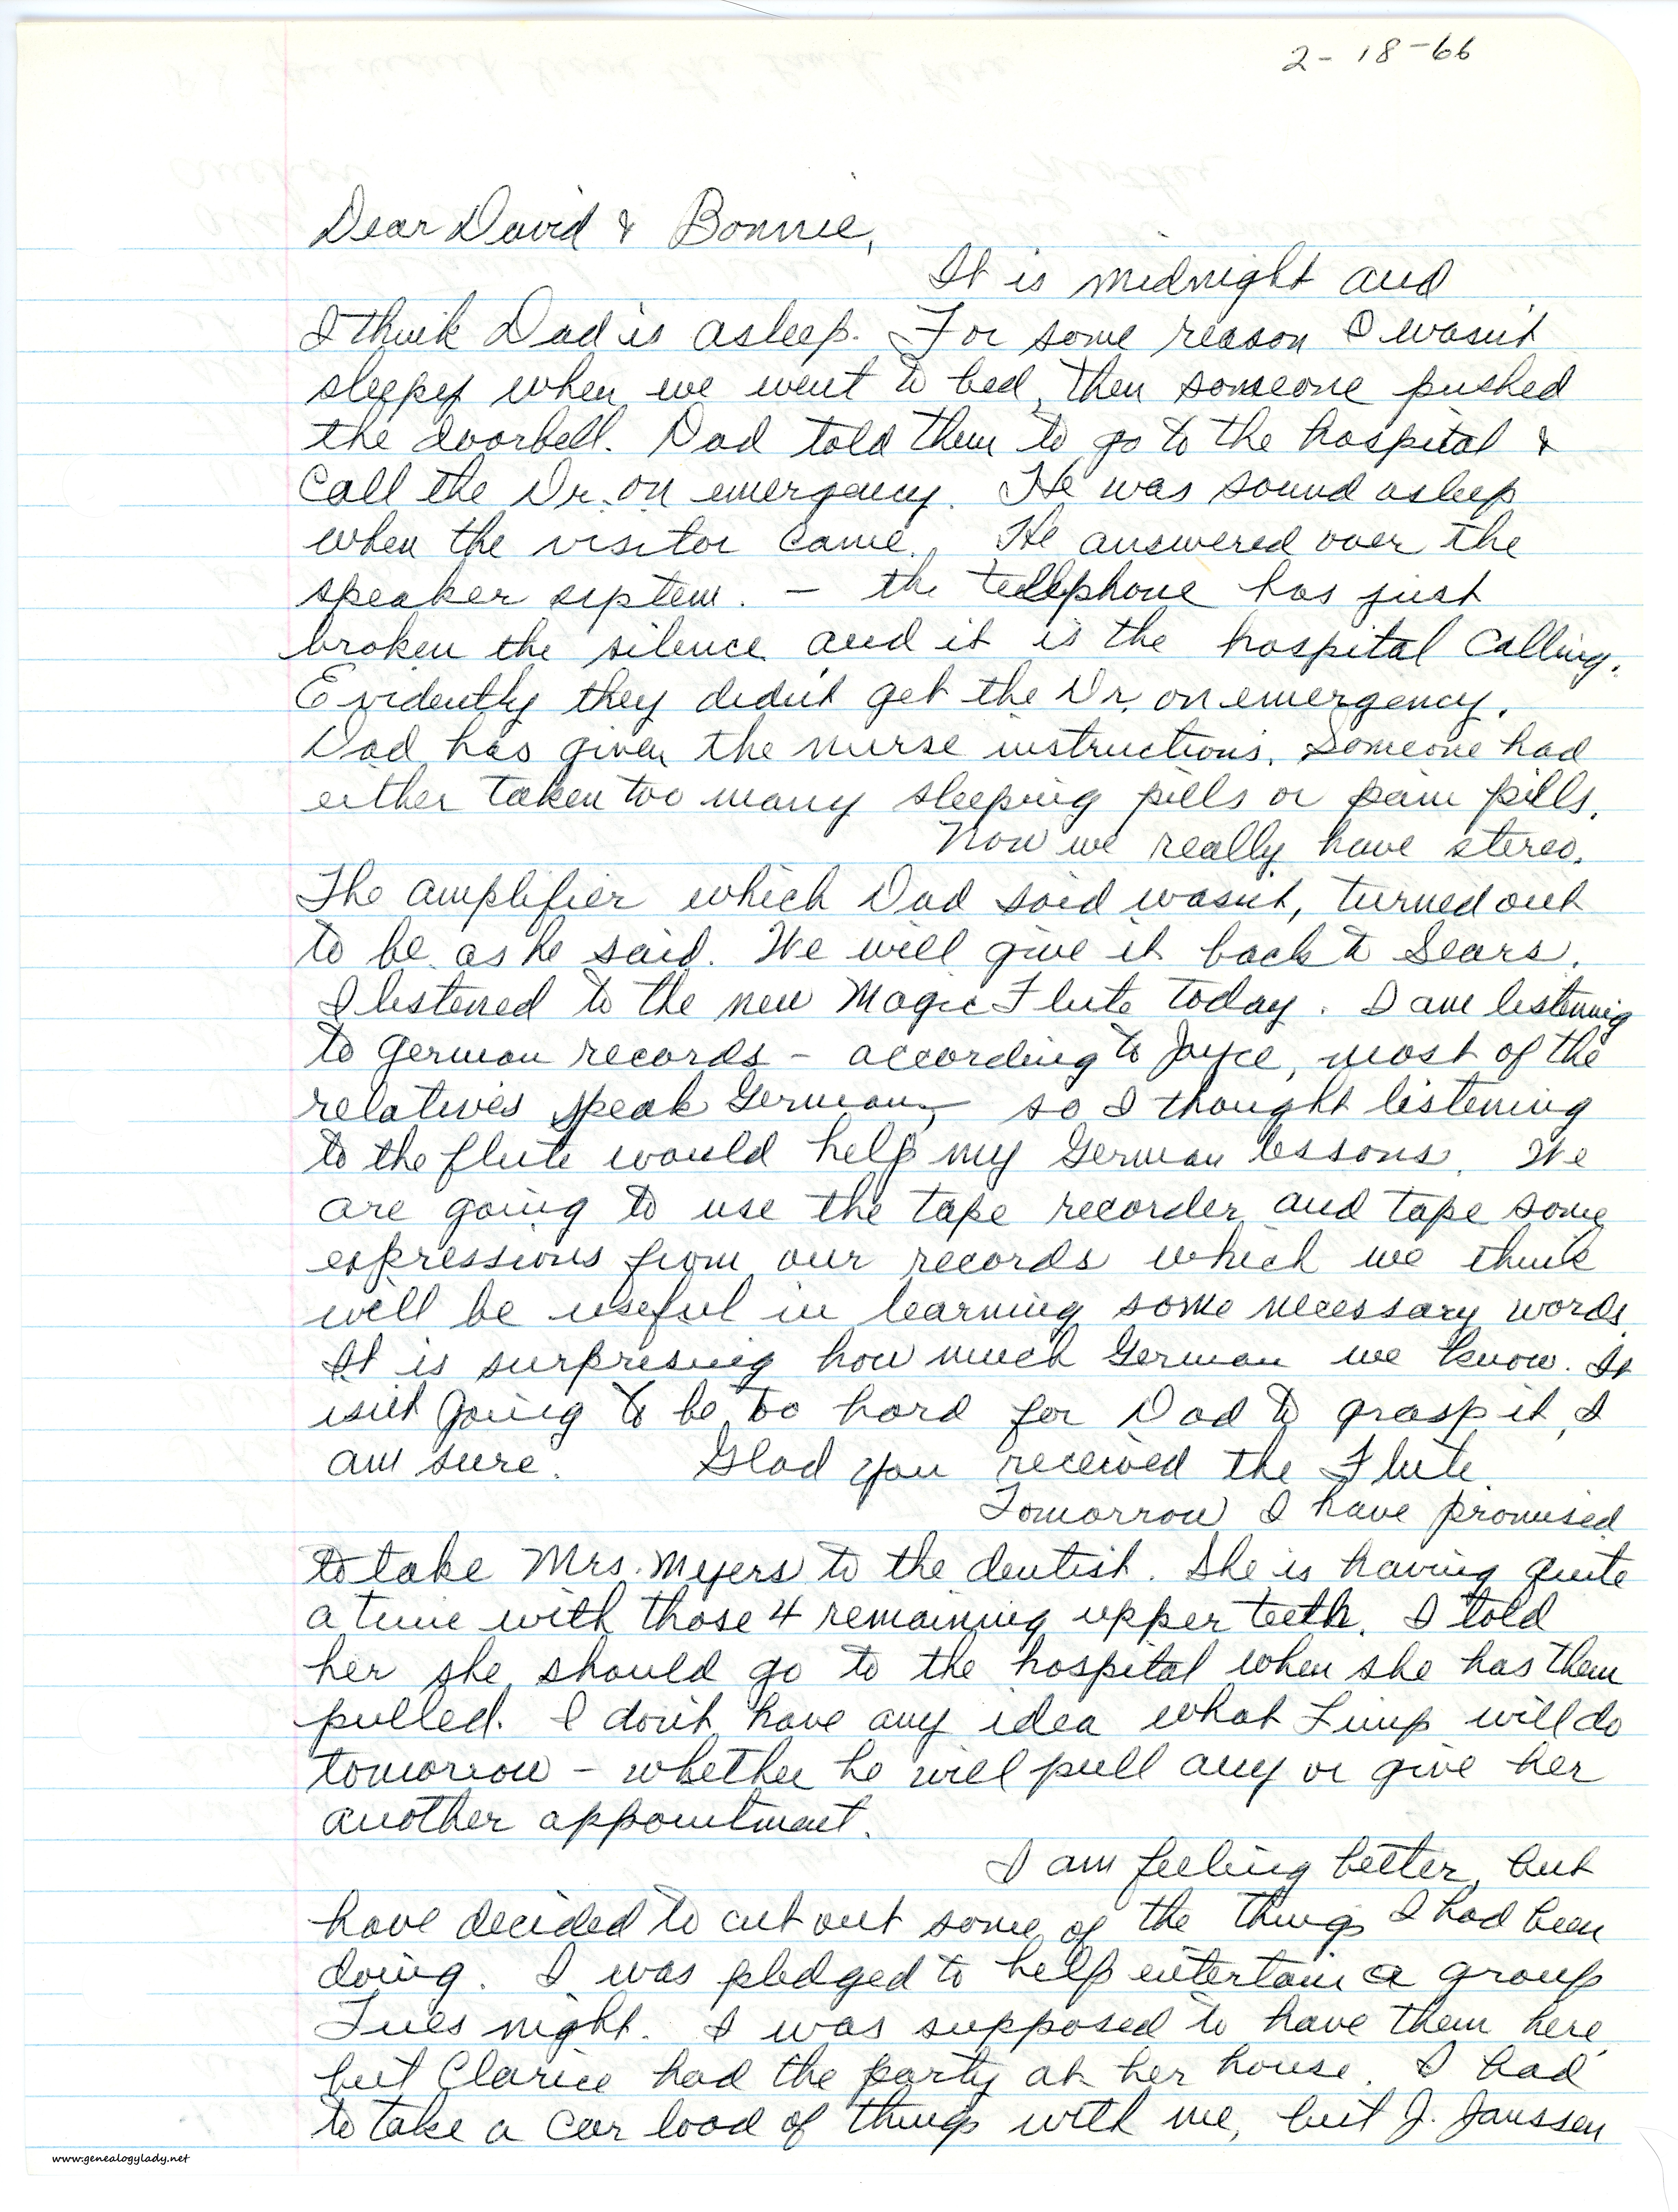 2-18-66
Dear David & Bonnie,
It is midnight and
I think Dad is asleep. For some reason I wasn't
sleepy when we went to bed, then someone pushed
the doorbell. Dad told them to go to the hospital &
call the Dr. on emergency. He was sound asleep
when the visitor came. He answered over the
speaker system. – the telephone has just
broken the silence and it is the hospital calling.
Evidently they didn't get the Dr. on emergency.
Dad has given the nurse instructions. Someone had
either taken too many sleeping pills or pain pills.
Now we really have stereo.
The amplifier which Dad said wasn't, turned out
to be as he said. We will give it back to Sears.
I listened to the new Magic Flute today. I am listening
to German records – according to Joyce, most of the
relatives speak German, so I thought listening
to the flute would help my German lessons. We
are going to use the tape recorder and tape some
expressions from our records which we think
will be useful in learning some necessary words.
It is surprising how much German we know. It
isn't going to be too hard for Dad to grasp it, I
am sure. Glad you received the Flute.
Tomorrow I have promised
to take Mrs. Myers to the dentist. She is having quite
a time with those 4 remaining upper teeth. I told
her she should go to the hospital when she has them
pulled. I don't have any idea what Fimp will do
tomorrow – whether he will pull any or give her
another appointment.
I am feeling better, but
have decided to cut out some of the things I had been
doing. I was pledged to help entertain a group
Tues night. I was supposed to have them here
but Clarice had the party at her house. I had
to take a car load of things with me, but J. Janssen
www.genealogylady.net